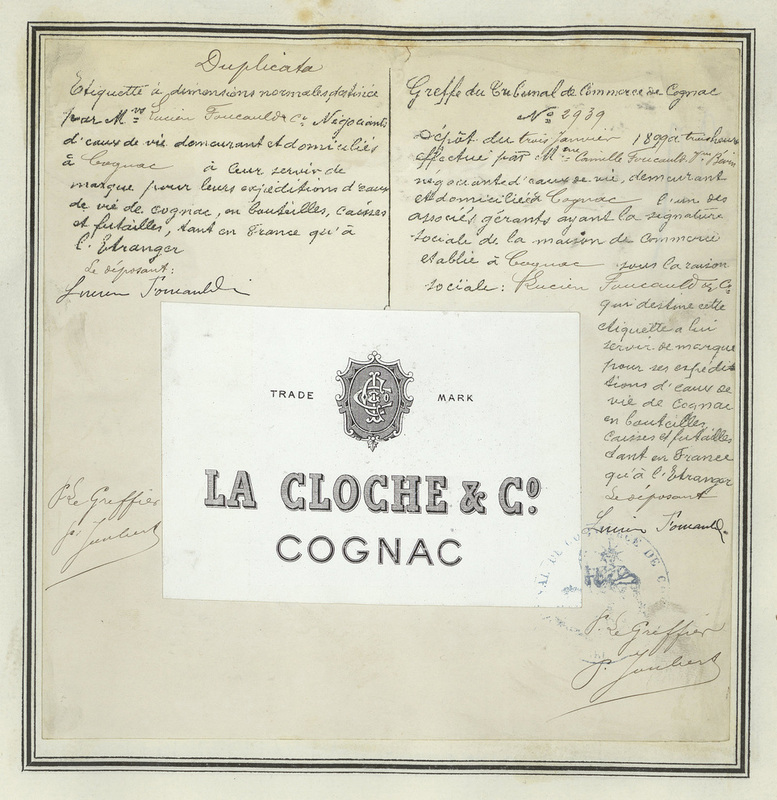 Duplicata
Etiquette à dimensions normales destinée
par Mrs Lucien Foucauld & Co Négociants
d'eaux de vie demeurant et domiciliés
à Cognac à leur servir de
marque pour leurs expéditions d'eaux
de vie de cognac, en bouteilles, caisses
et futailles, tant en France qu'à
l'Etranger
Le déposant:
Lucien Foucauld
Pr Le Greffier
P. Joubert
Greffe du Tribunal de Commerce de Cognac
No 2939
Dépôt du trois Janvier 1899 à trois heures
effectué par Mme Camille Foucauld Vve
négociante d'eaux de vie, demeurant
et domiciliée à Cognac l'un des
associés gérants ayant la signature
sociale de la maison de commerce
établie à Cognac sous la raison
sociale: Lucien Foucauld & Co
qui destine cette
étiquette a lui
servir de marque
pour ses expédi
tions d'eaux de
vie de Cognac
en bouteilles,
caisses et futailles
tant en France
qu'à l'Etranger
Le déposant
Lucien Foucauld
TRADE MARK
LA CLOCHE & Co
COGNAC
Pr Le Greffier
P. Joubert